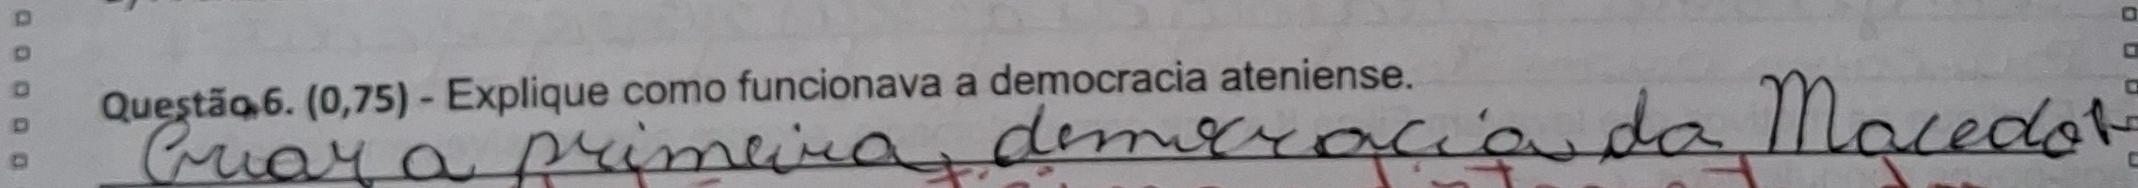 Questão 6. (0,75) - Explique como funcionava a democracia ateniense.
a primeira, democracia da